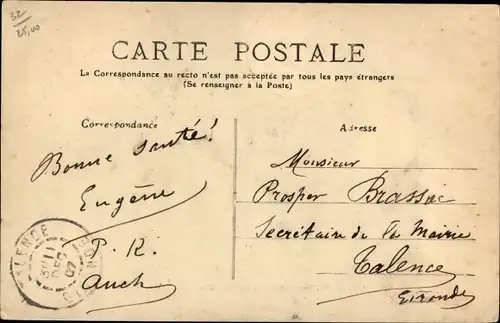 32
25,00
CARTE POSTALE
La Correspondance au recto n'est pas acceptée par tous les pays étrangers
(Se renseigner à la Poste)
Correspondance
Bonne santé!
Eugène
P. K.
Auch
TALENCE
GIRONDE
11
DEC
07
Adresse
Monsieur
Prosper Brassac
Secrétaire de la Mairie
Talence
Gironde